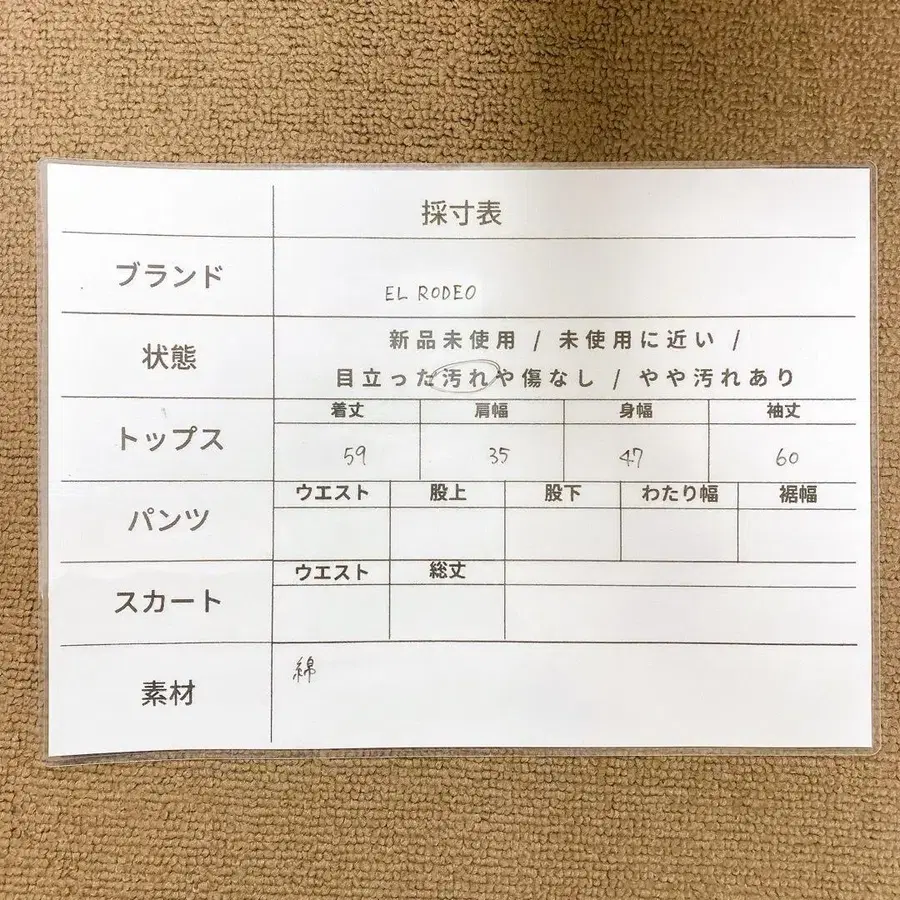 採寸表
ブランド
EL RODEO
状態
新品未使用 / 未使用に近い /
目立った汚れや傷なし / やや汚れあり
トップス
着丈 肩幅 身幅 袖丈
59 35 47 60
パンツ
ウエスト 股上 股下 わたり幅 裾幅
スカート
ウエスト 総丈
素材
綿